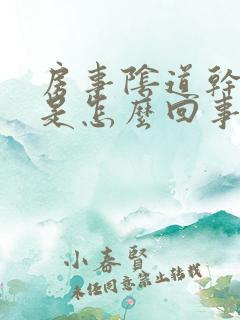 房事陰道幹
是怎麼回事
小春賢
未經同意禁止轉載